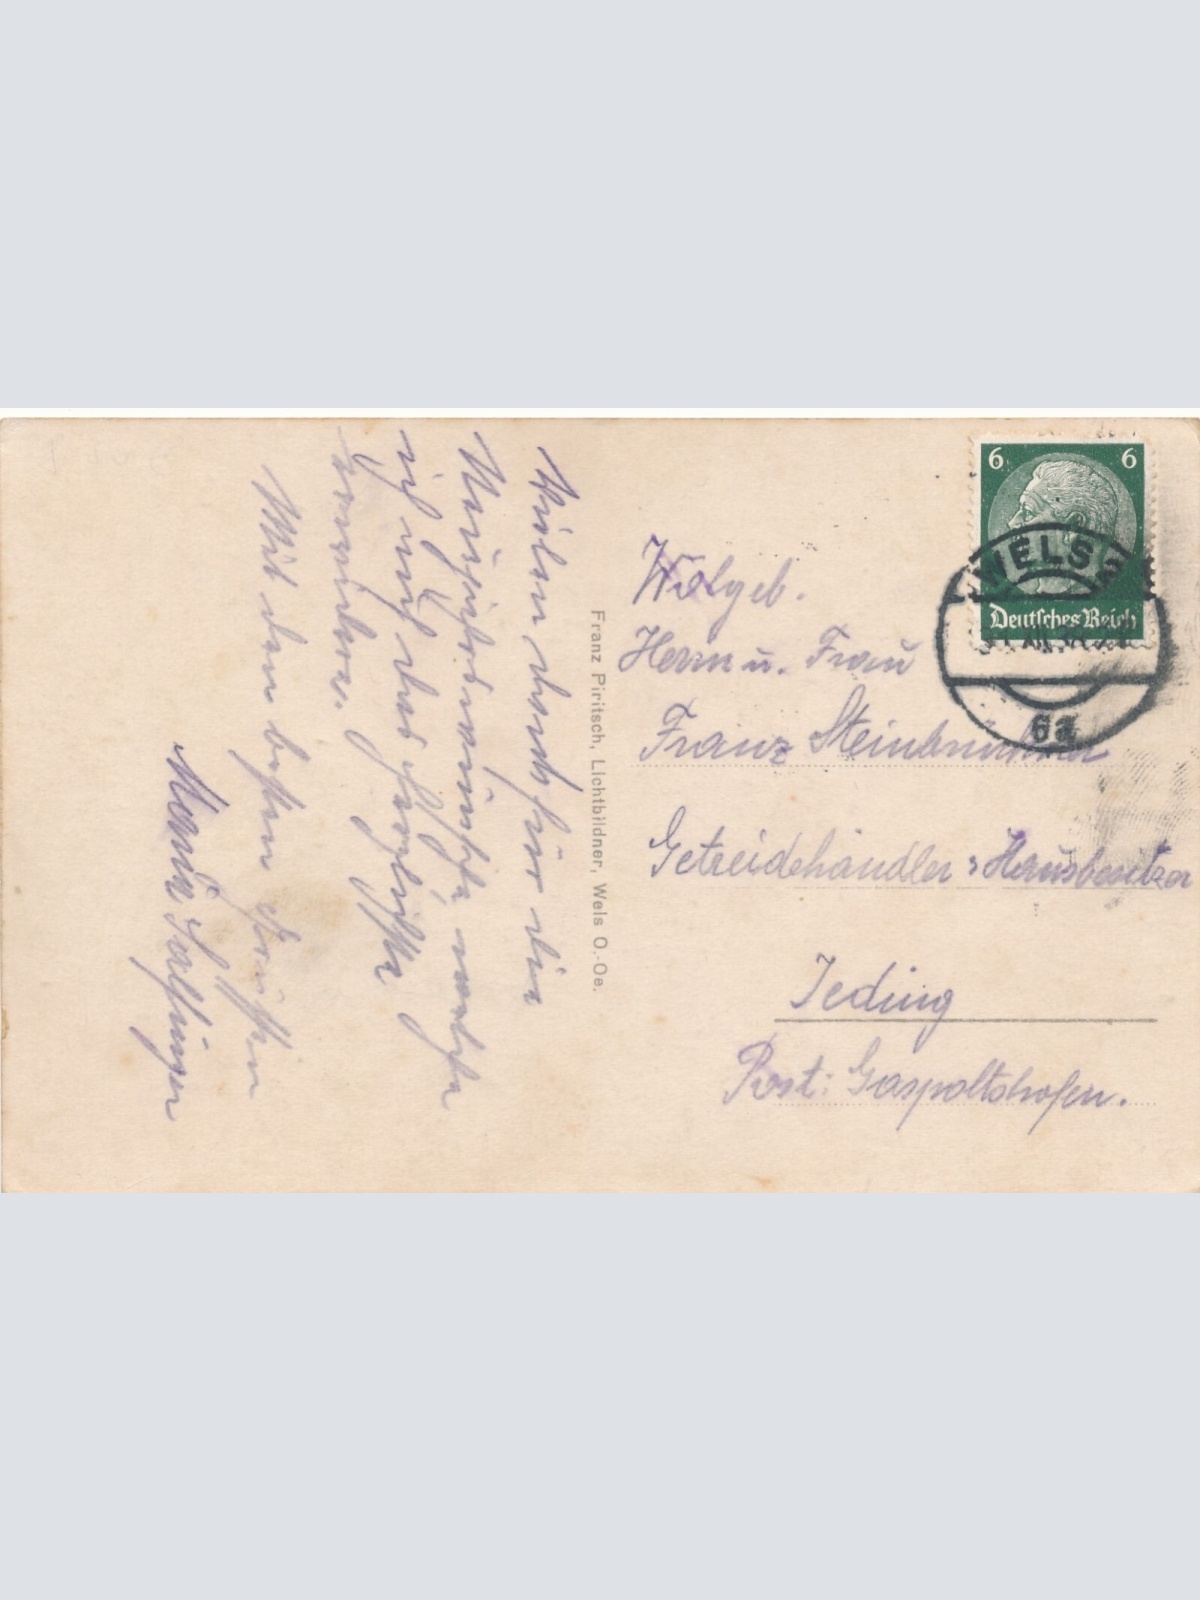 Vielen Dank für die
Neujahrswünsche, welche
ich auch auf herzlichste
erwidere.
Mit den besten Grüßen
Maria Salfinger
Franz Piritsch, Lichtbildner, Wels O.-Oe.
6 6
Deutsches Reich
WELS 2
6a
Wolgeb.
Herrn u. Frau
Franz
Getreidehändler Hausbesitzer
Jeding
Post: Gaspoltshofen.